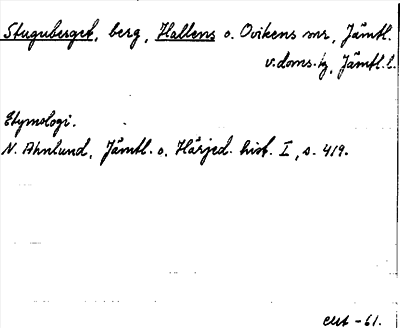 Stuguberget, berg, Hallens o. Ovikens snr, Jämtl.
v. doms.-tg, Jämtl. l.
Etymologi.
N. Ahnlund, Jämtl. o. Härjed. hist. I, s. 419.
-61.